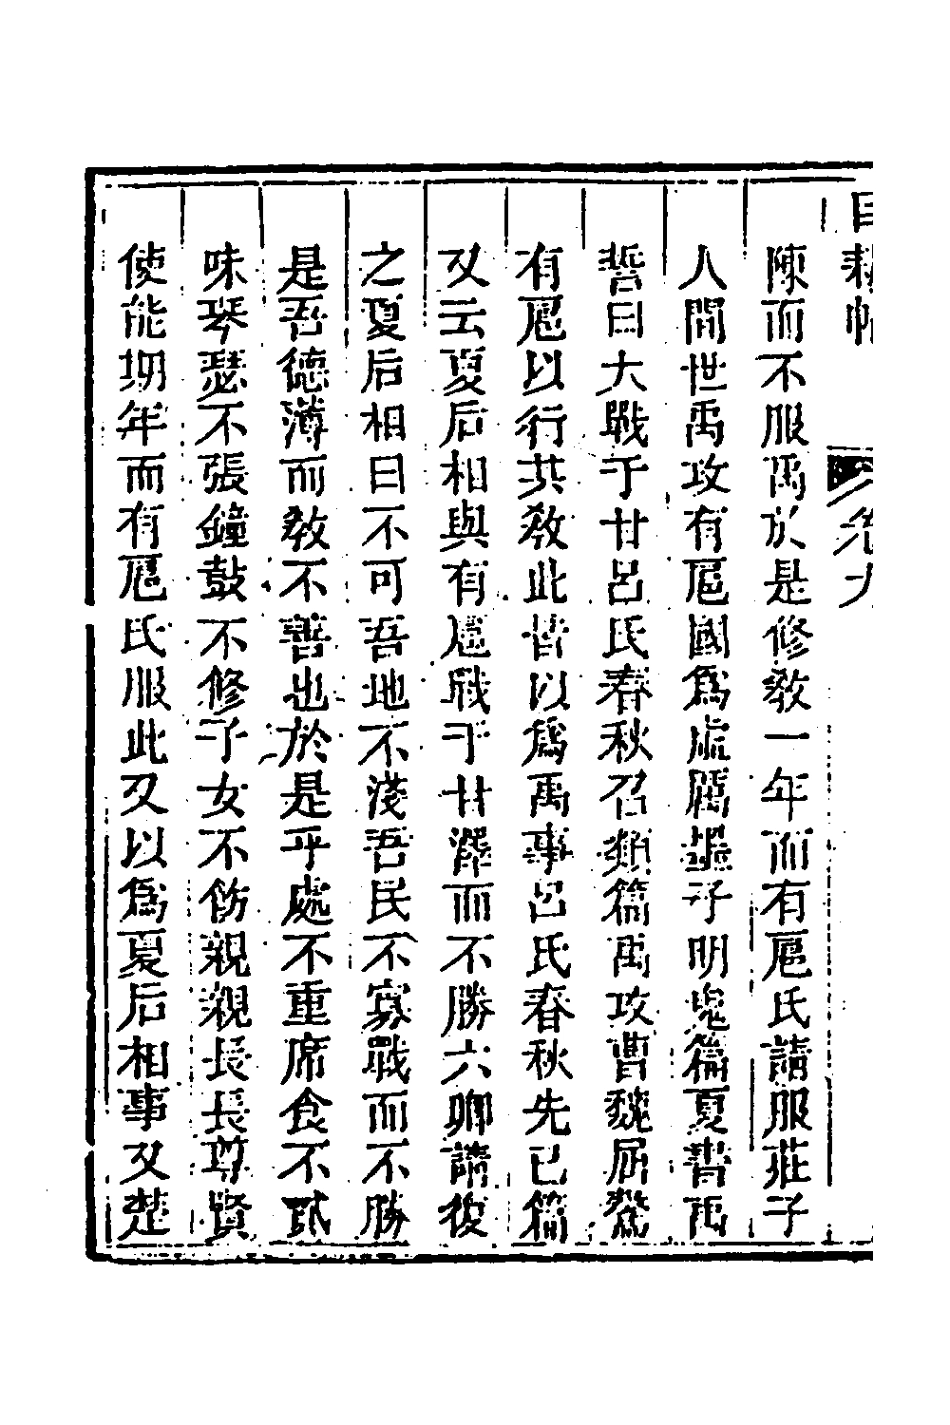 卷九
陳而不服禹於是修敎一年而有扈氏請服莊子
人間世禹攻有扈國爲虛厲墨子明鬼篇夏書禹
誓曰大戰于甘呂氏春秋召類篇禹攻曹魏屈驁
有扈以行其敎此皆以爲禹事呂氏春秋先己篇
又云夏后相與有扈戰于甘澤而不勝六卿請復
之夏后相曰不可吾地不淺吾民不寡戰而不勝
是吾德薄而敎不善也於是乎處不重席食不貳
味琴瑟不張鐘鼓不修子女不飭親親長長尊賢
使能期年而有扈氏服此又以爲夏后相事又楚